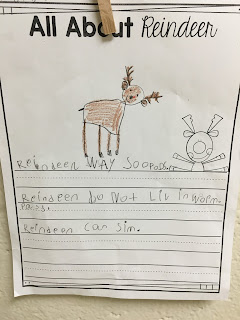 All About Reindeer
Reindeer WAY
Reindeer Do Not Liv in Worm
Reindeer can Sim.